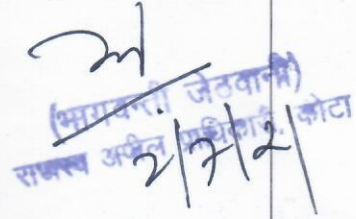 (भागवन्ती जेठवानी)
राजस्व अपील प्राधिकारी, कोटा
2/7/21